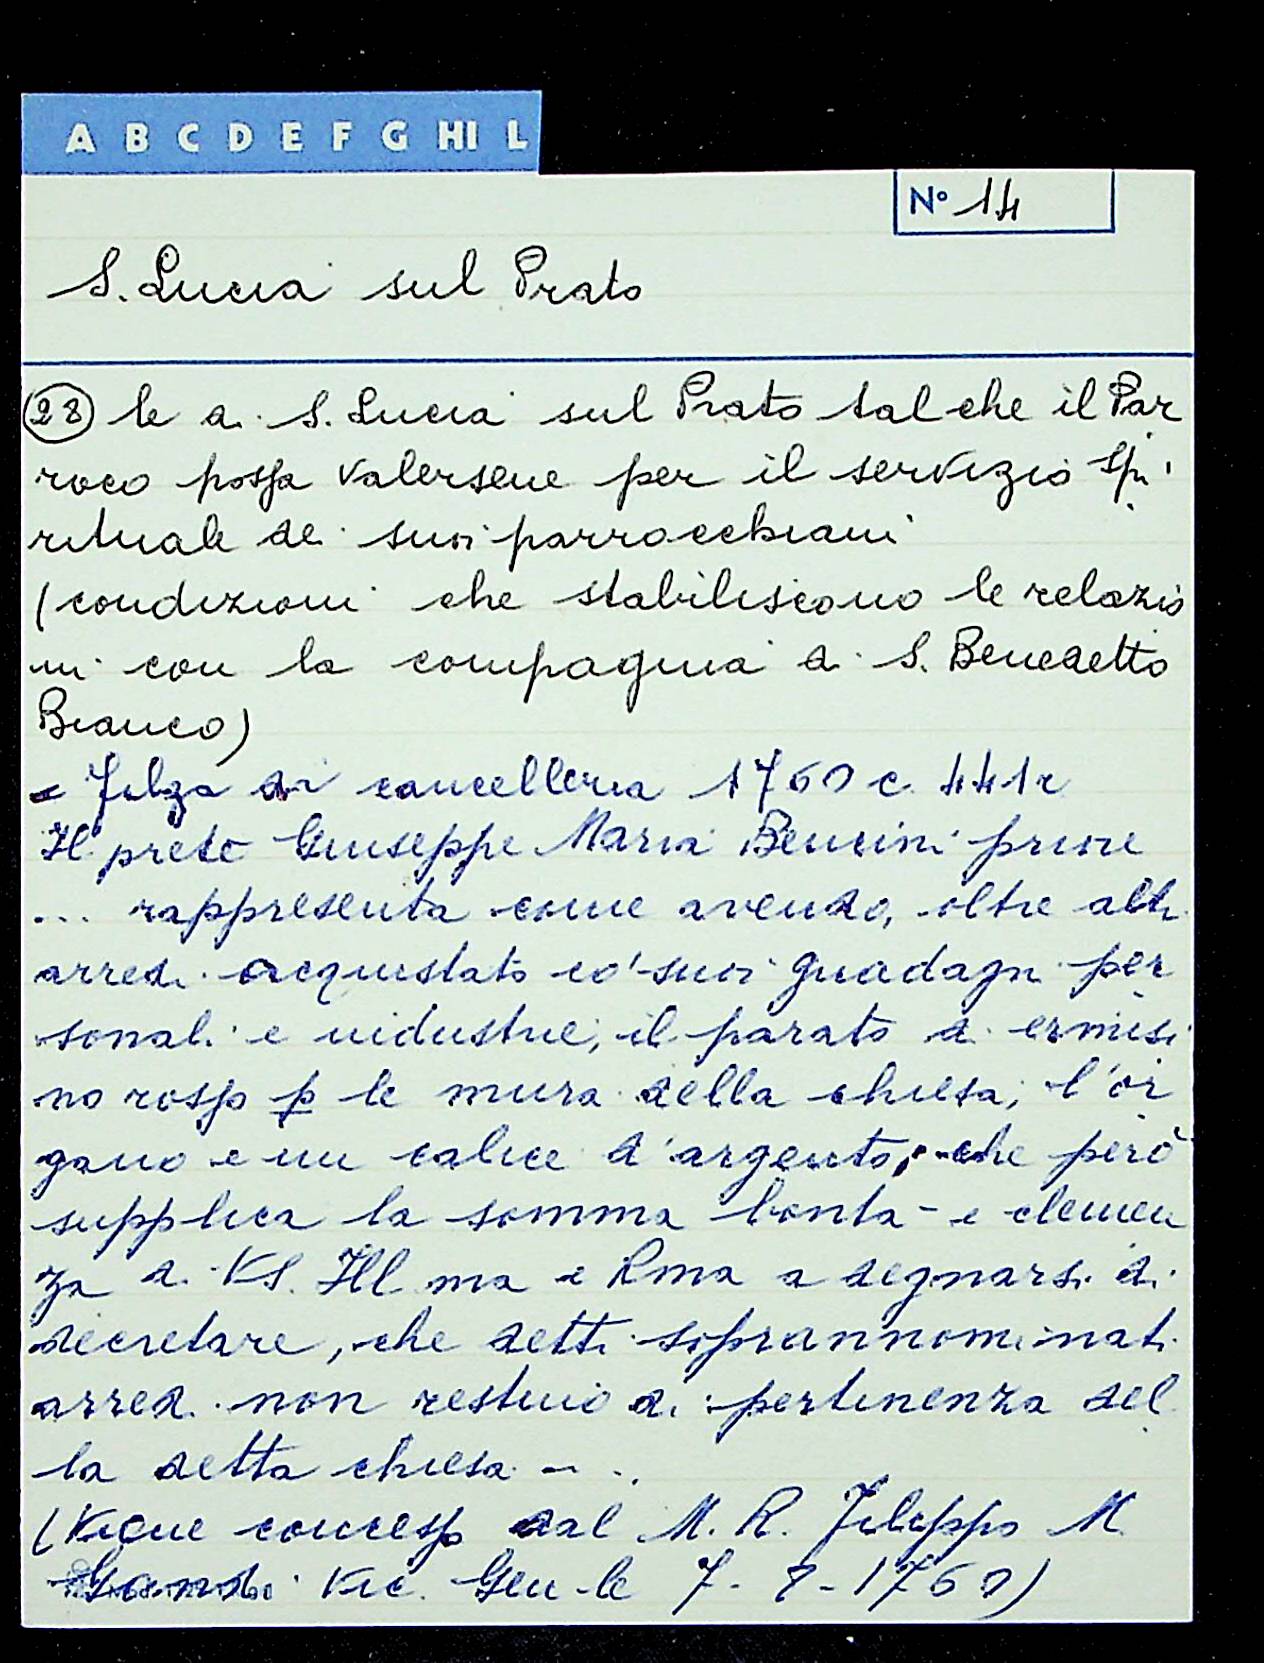 A B C D E F G HI L
N° 14
S. Lucia sul Prato
(28) le di S. Lucia sul Prato tal che il Par
roco possa valersene per il servizio spi
rituale dei suoi parrocchiani
(condizioni che stabiliscono le relazio
ni con la compagnia di S. Benedetto
Bianco)
= Filza di cancelleria 1760 c. 441r
Il prete Giuseppe Maria Bencini priore
... rappresenta come avendo, oltre altri
arredi acquistato co' suoi guadagni per
sonali e industrie, il parato di ermisi
no rosso p le mura della chiesa, l'or
gano e un calice d'argento, che però
supplica la somma bontà e clemen
za di VS. Ill ma e Rma a degnarsi di
decretare, che detti soprannominati
arredi non restino di pertinenza del
la detta chiesa ...
(Viene concesso dal M. R. Filippo M
Vic. Gen-le 7-